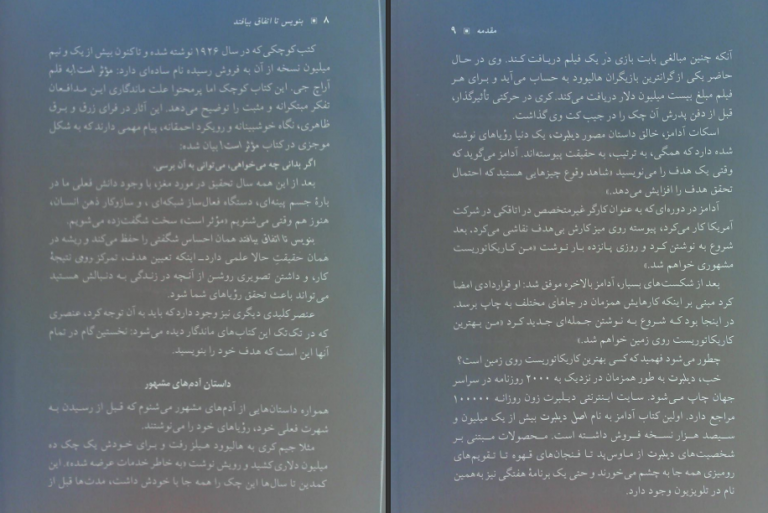 ۸ ▣ بنویس تا اتفاق بیافتد
کتب کوچکی که در سال ۱۹۲۶ نوشته شده و تاکنون بیش از یک و نیم
میلیون نسخه از آن به فروش رسیده نام ساده‌ای دارد: مؤثر است! به قلم
آر اچ جی. این کتاب کوچک اما پرمحتوا علت ماندگاری این مدافعان
تفکر مبتکرانه و مثبت را توضیح می‌دهد. این آثار در ورای زرق و برق
ظاهری، نگاه خوشبینانه و رویکرد احمقانه، پیام مهمی دارند که به شکل
موجزی در کتاب مؤثر است! بیان شده:
اگر بدانی چه می‌خواهی، می‌توانی به آن برسی.
بعد از این همه سال تحقیق در مورد مغز، با وجود دانش فعلی ما در
بارهٔ جسم پینه‌ای، دستگاه فعال‌ساز شبکه‌ای، و سازوکار ذهن انسان،
هنوز هم وقتی می‌شنویم «مؤثر است» سخت شگفت‌زده می‌شویم.
بنویس تا اتفاق بیافتد همان احساس شگفتی را حفظ می‌کند و ریشه در
همان حقیقتِ حالا علمی دارد ـ اینکه تعیین هدف، تمرکز روی نتیجهٔ
کار، و داشتن تصویری روشن از آنچه در زندگی به دنبالش هستید
می‌تواند باعث تحقق رؤیاهای شما شود.
عنصر کلیدی دیگری نیز وجود دارد که باید به آن توجه کرد، عنصری
که در تک‌تک این کتاب‌های ماندگار دیده می‌شود: نخستین گام در تمام
آنها این است که هدف خود را بنویسید.
داستان آدم‌های مشهور
همواره داستان‌هایی از آدم‌های مشهور می‌شنوم که قبل از رسیدن به
شهرت فعلی خود، رؤیاهای خود را می‌نوشتند.
مثلا جیم کری به هالیوود هیلز رفت و برای خودش یک چک ده
میلیون دلاری کشید و رویش نوشت «به خاطر خدمات عرضه شده». این
کمدین تا سال‌ها این چک را همه جا با خودش داشت، مدت‌ها قبل از
مقدمه ▣ ۹
آنکه چنین مبالغی بابت بازی در یک فیلم دریافت کند. وی در حال
حاضر یکی از گرانترین بازیگران هالیوود به حساب می‌آید و برای هر
فیلم مبلغ بیست میلیون دلار دریافت می‌کند. کری در حرکتی تأثیرگذار،
قبل از دفن پدرش آن چک را در جیب کت وی گذاشت.
اسکات آدامز، خالق داستان مصور دیلبرت، یک دنیا رؤیاهای نوشته
شده دارد که همگی، به ترتیب، به حقیقت پیوسته‌اند. آدامز می‌گوید که
وقتی یک هدف را می‌نویسید «شاهد وقوع چیزهایی هستید که احتمال
تحقق هدف را افزایش می‌دهد.»
آدامز در دوره‌ای که به عنوان کارگر غیرمتخصص در اتاقکی در شرکت
آمریکا کار می‌کرد، پیوسته روی میز کارش بی‌هدف نقاشی می‌کرد. بعد
شروع به نوشتن کرد و روزی پانزده بار نوشت «من کاریکاتوریست
مشهوری خواهم شد.»
بعد از شکست‌های بسیار، آدامز بالاخره موفق شد: او قراردادی امضا
کرد مبنی بر اینکه کارهایش همزمان در جاهای مختلف به چاپ برسد.
در اینجا بود که شروع به نوشتن جمله‌ای جدید کرد «من بهترین
کاریکاتوریست روی زمین خواهم شد.»
چطور می‌شود فهمید که کسی بهترین کاریکاتوریست روی زمین است؟
خب، دیلبرت به طور همزمان در نزدیک به ۲۰۰۰ روزنامه در سراسر
جهان چاپ می‌شود. سایت اینترنتی دیلبرت زون روزانه ۱۰۰۰۰۰
مراجع دارد. اولین کتاب آدامز به نام اصل دیلبرت بیش از یک میلیون و
سیصد هزار نسخه فروش داشته است. محصولات مبتنی بر
شخصیت‌های دیلبرت از ماوس‌پد تا فنجان‌های قهوه تا تقویم‌های
رومیزی همه جا به چشم می‌خورند و حتی یک برنامهٔ هفتگی نیز به همین
نام در تلویزیون وجود دارد.